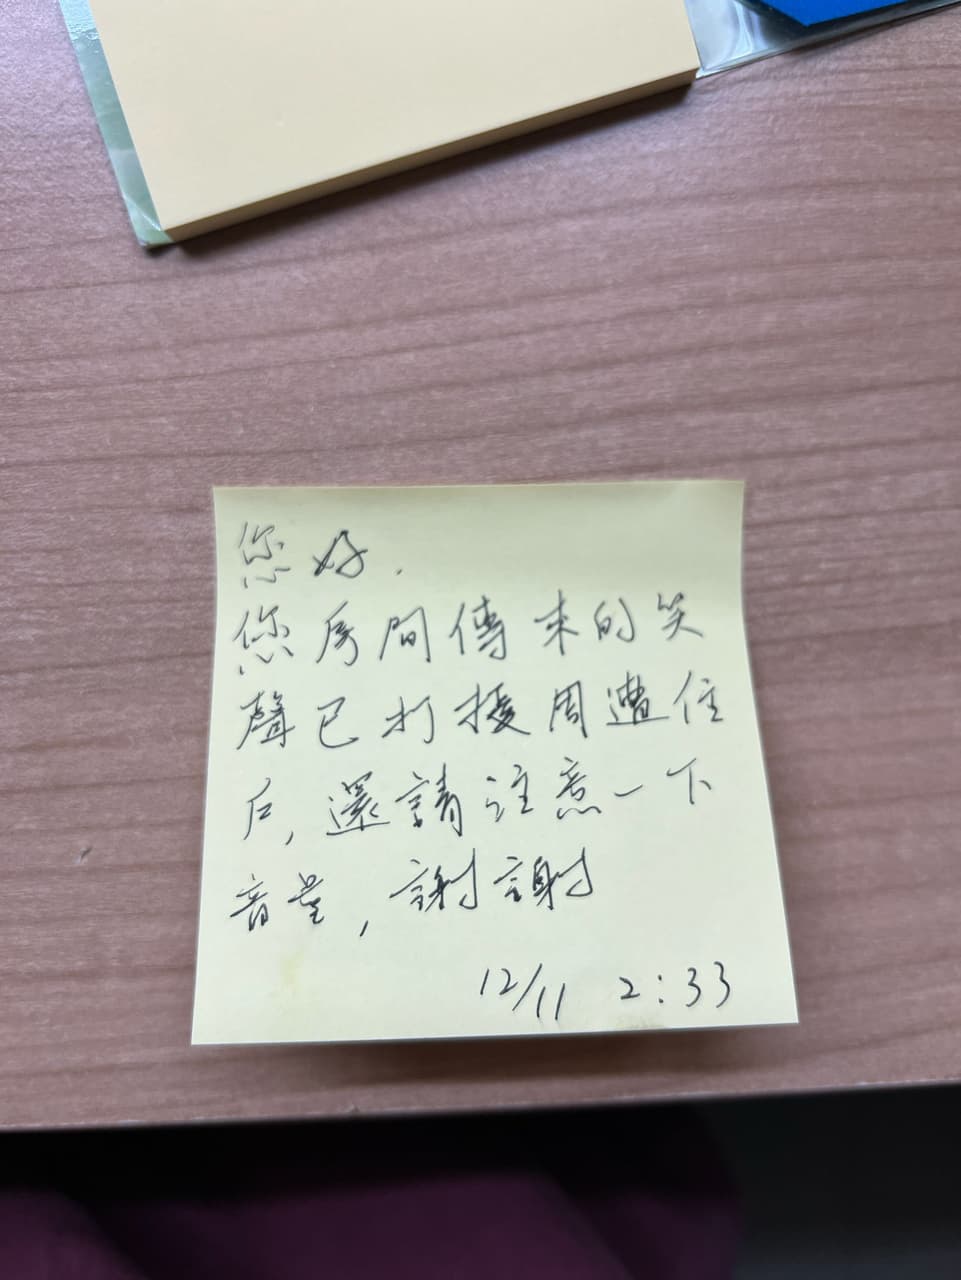 您好.
您房間傳來的笑
聲已打擾周遭住
戶,還請注意一下
音量,謝謝
12/11 2:33